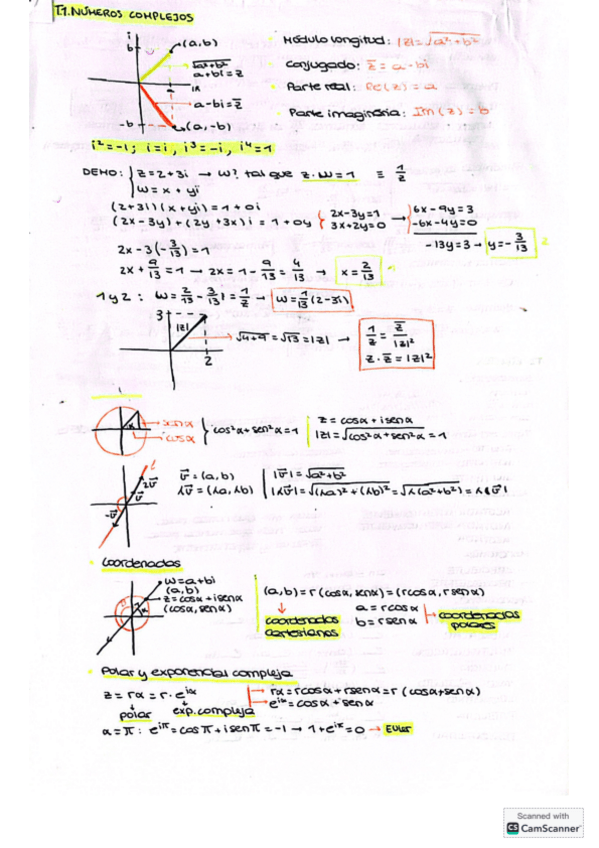 T.1. NÚMEROS COMPLEJOS
i
b
(a,b)
√a²+b²
a+bi=z
IR
a-bi=z̅
-b
(a,-b)
Módulo longitud: |z|=√a²+b²
Conjugado: z̅ = a-bi
Parte real: Re(z)=a
Parte imaginaria: Im(z)=b
i²=-1; i=i, i³=-i, i⁴=1
DEMO: { z=2+3i → w? tal que z·w=1 ≡ 1/z
w=x+yi
(2+3i)(x+yi)=1+0i
(2x-3y)+(2y+3x)i=1+0y { 2x-3y=1 → { 6x-9y=3
3x+2y=0 -6x-4y=0
-13y=3 → y=-3/13 2
2x-3(-3/13)=1
2x+9/13=1 → 2x=1-9/13=4/13 → x=2/13 1
1 y 2: w=2/13-3/13i=1/z → w=1/13(2-3i)
3
|z|
2
√4+9=√13=|z| → 1/z=z̅/|z|²
z·z̅=|z|²
α
senα
cosα
} cos²α+sen²α=1
z=cosα+isenα
|z|=√cos²α+sen²α=1
2v⃗
v⃗
-v⃗
v⃗=(a,b) |v⃗|=√a²+b²
λv⃗=(λa,λb) |λv⃗|=√(λa)²+(λb)²=√λ(a²+b²)=λ|v⃗|
Coordenadas
w=a+bi
(a,b)
z=cosα+isenα
(cosα,senα)
α
(a,b)=r(cosα,senα)=(rcosα,rsenα)
coordenadas cartesianas
a=rcosα
b=rsenα
coordenadas polares
Polar y exponencial compleja
z=rα=r·e^iα
rα=rcosα+rsenα=r(cosα+senα)
e^iα=cosα+isenα
polar exp.compleja
α=π: e^iπ=cosπ+isenπ=-1 → 1+e^iπ=0 → Euler
Scanned with
CS CamScanner